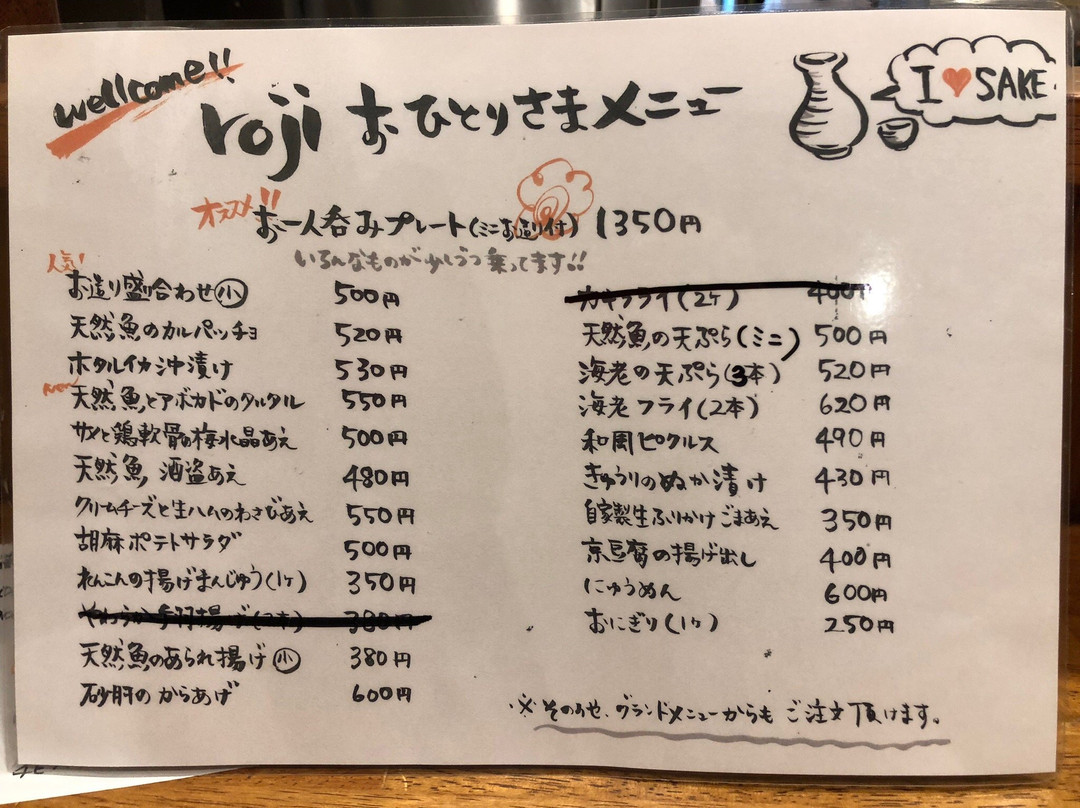 wellcome!!
roji おひとりさまメニュー
I ♥ SAKE.
オススメ!! お一人呑みプレート(ミニお造り付) 1350円
いろんなものが少しづつ乗ってます!!
人気!
お造り盛り合わせ小 500円
天然魚のカルパッチョ 520円
ホタルイカ沖漬け 530円
New
天然魚とアボカドのタルタル 550円
サメと鶏軟骨の梅水晶あえ 500円
天然魚酒盗あえ 480円
クリームチーズと生ハムのわさびあえ 550円
胡麻ポテトサラダ 500円
れんこんの揚げまんじゅう(1ヶ) 350円
やわらか手羽揚げ(2本) 380円
天然魚のあられ揚げ小 380円
砂肝のからあげ 600円
カキフライ(2ヶ) 400円
天然魚の天ぷら(ミニ) 500円
海老の天ぷら(3本) 520円
海老フライ(2本) 620円
和風ピクルス 490円
きゅうりのぬか漬け 430円
自家製生ふりかけごまあえ 350円
京豆腐の揚げ出し 400円
にゅうめん 600円
おにぎり(1ヶ) 250円
※そのほか、グランドメニューからもご注文頂けます。